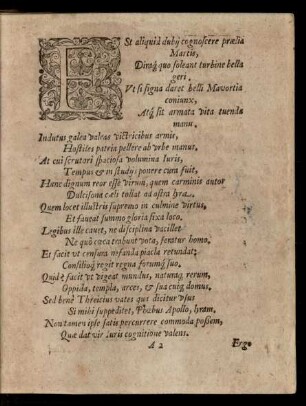 ESt aliquid dubij cognoscere prælia
Martis,
Diraq́; quo soleant turbine bella
geri.
Vt si signa daret belli Mavortia
coniunx,
Atq́; sit armata vita tuenda
manu.
Indutus galea valeas victricibus armis,
Hostiles patria pellere ab urbe manus.
At cui scrutari spaciosa volumina Iuris,
Tempus & in studijs ponere cura fuit,
Hunc dignum rear esse virum, quem carminis autor
Dulcisona cœli tollat ad astra lyra.
Quem locet illustris supremo in culmine virtus,
Et faveat summo gloria fixa loco.
Legibus ille cavet, ne disciplina vacillet
Ne quò cæca trahunt vota, feratur homo.
Et facit ut censura nefanda piacla retundat;
Consilioq́; regit regna forumq́; suo.
Quid? facit ut vigeat mundus, naturaq́; rerum,
Oppida, templa, arces, & sua cuiq́; domus.
Sed benè Threicius vates qua dicitur usus
Si mihi suppeditet, Phœbus Apollo, lyram.
Non tamen ipse satis percurrere commoda possem,
Quæ dat vir Iuris cognitione valens.
A 2 Ergo